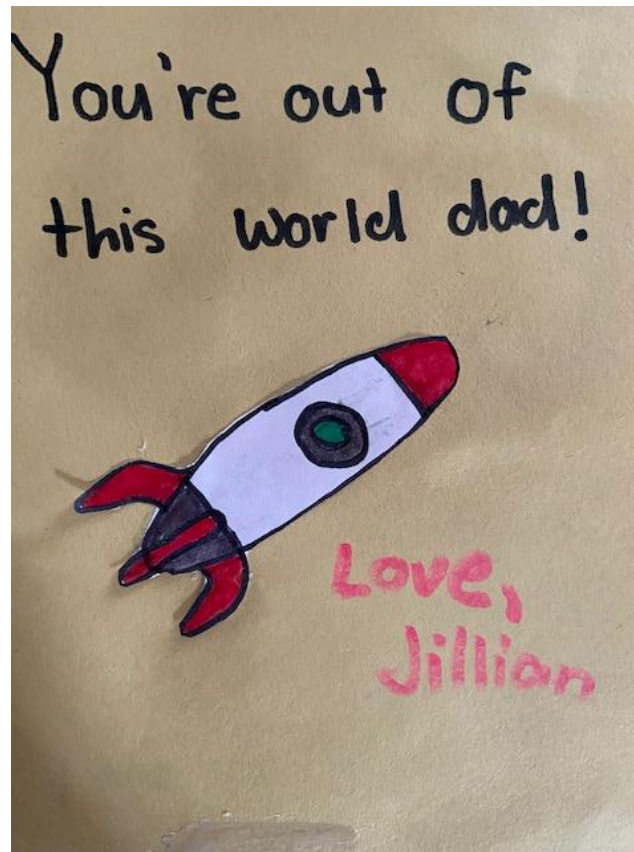 You're out of
this world dad!
Love,
Jillian